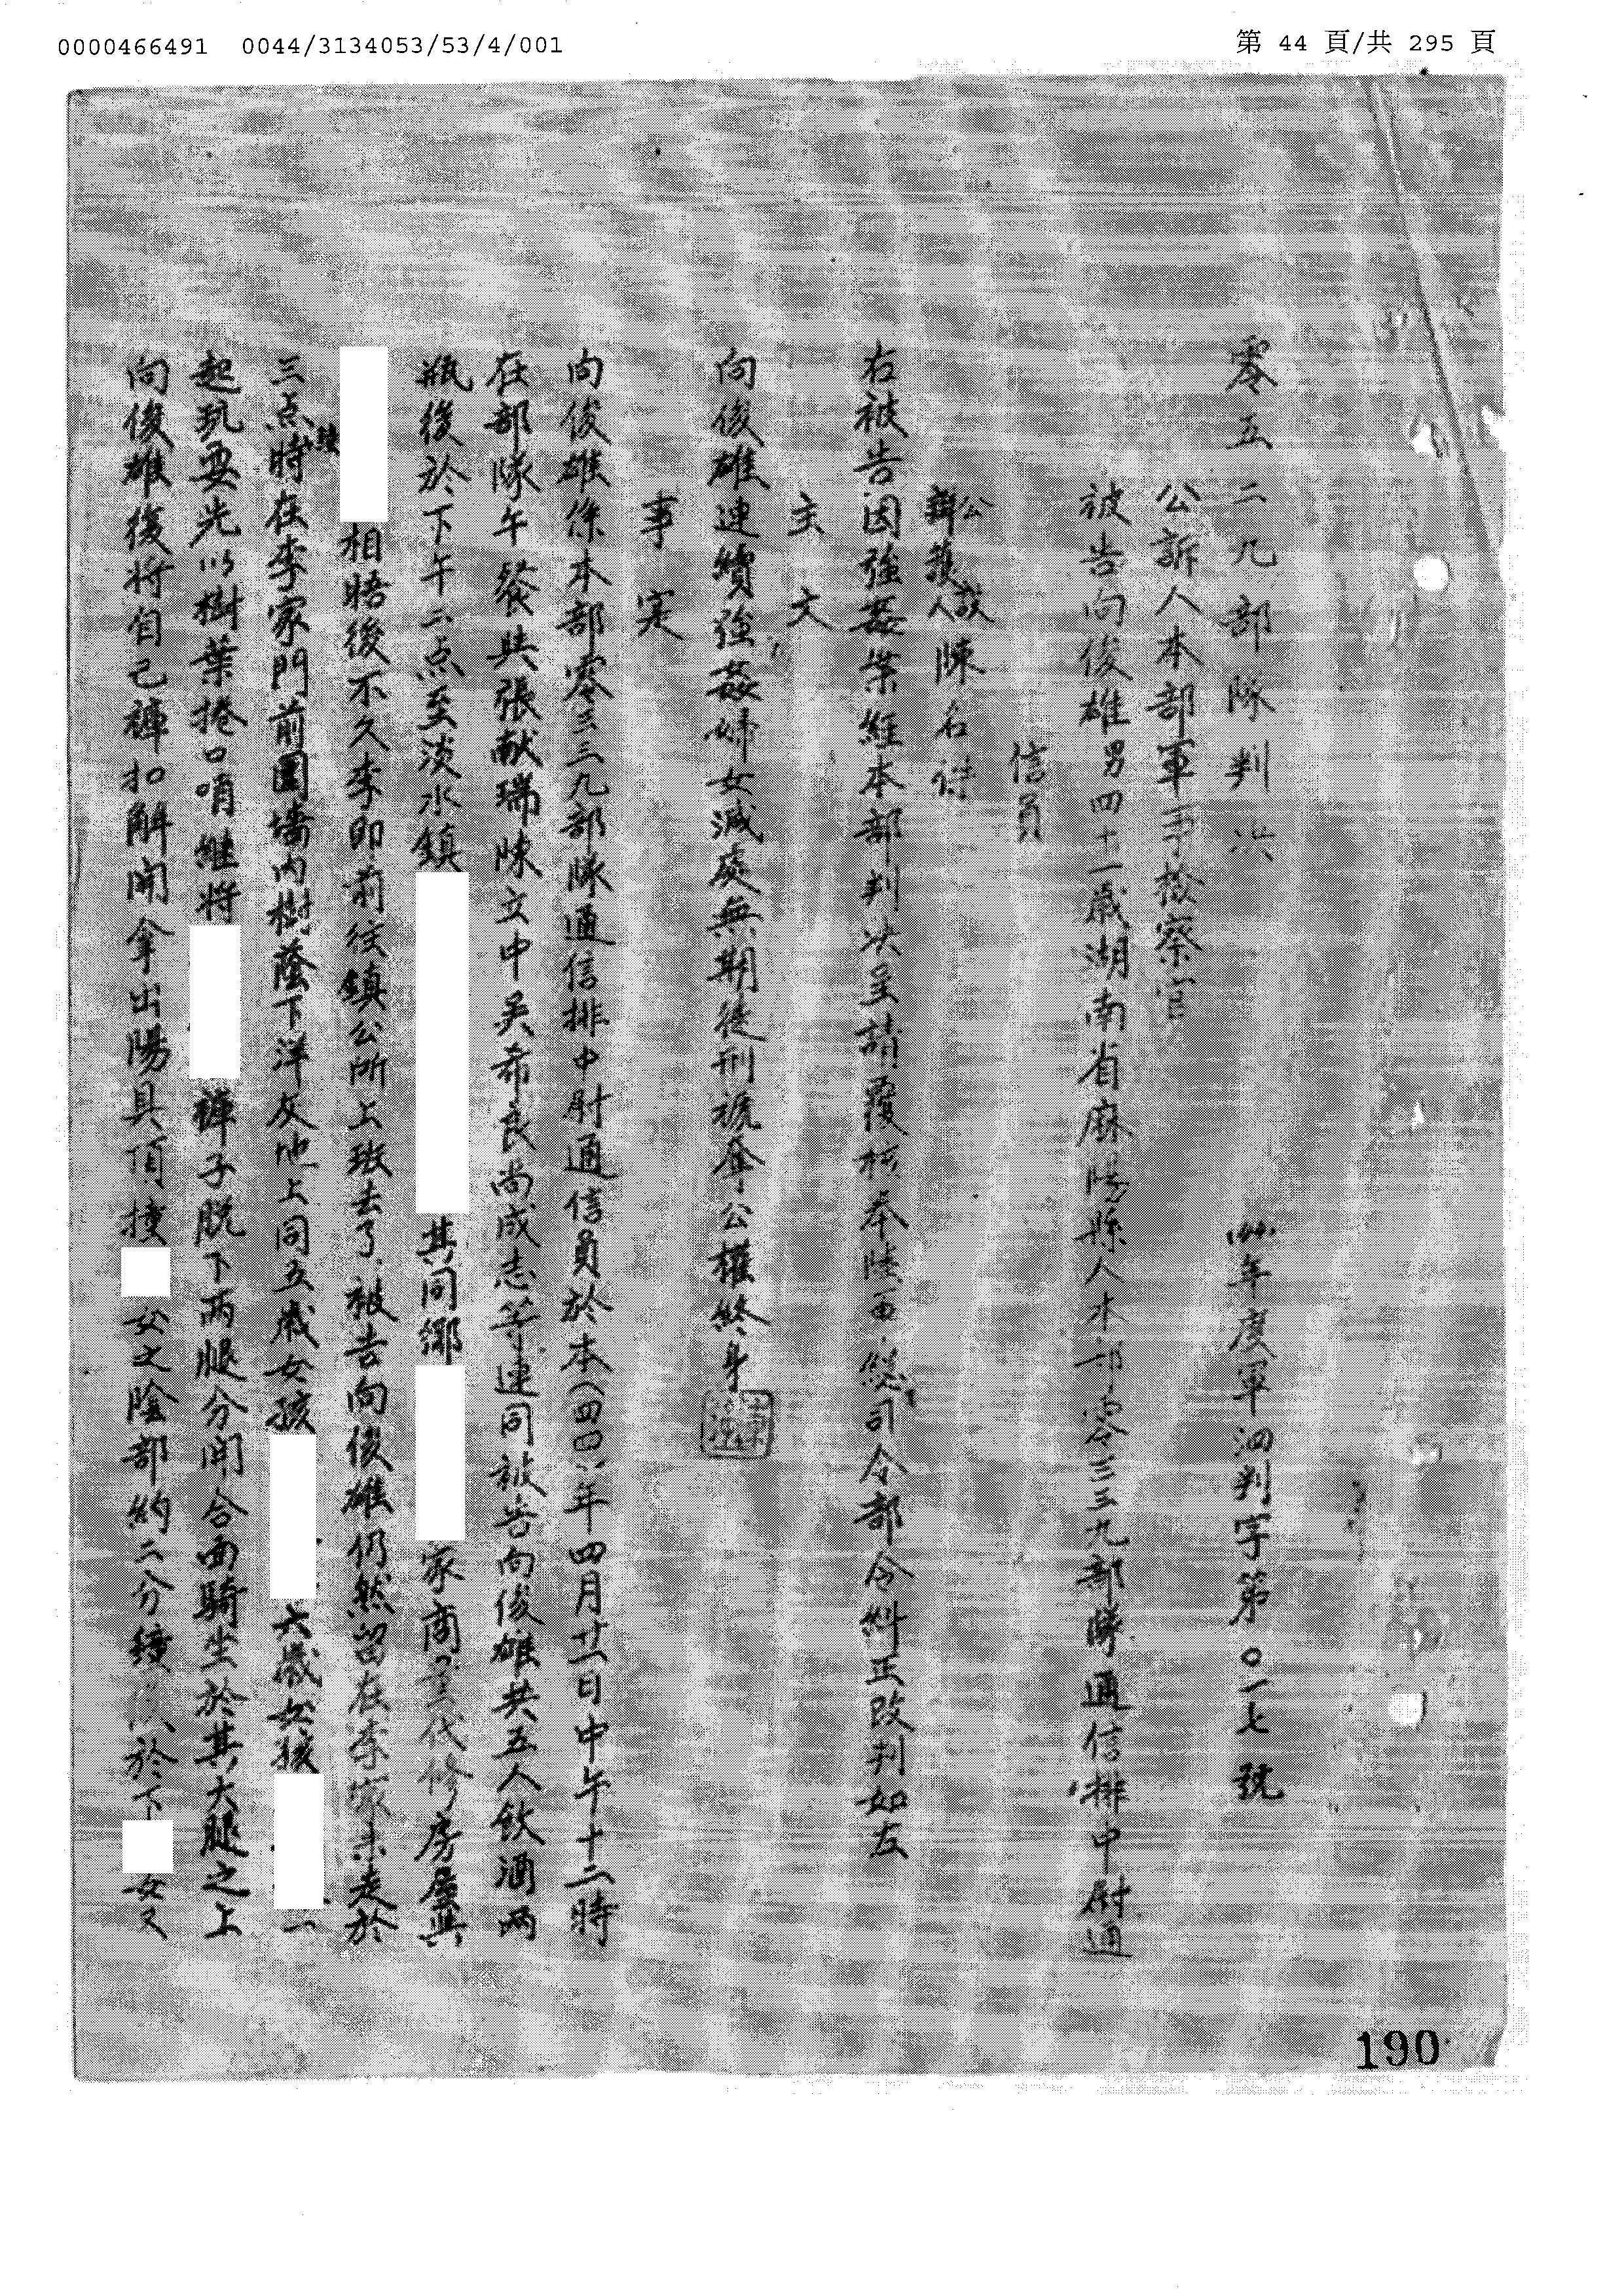 0000466491 0044/3134053/53/4/001 第 44 頁/共 295 頁
零五二九部隊判決 四四年度軍泗判字第〇一七號
公訴人本部軍事檢察官
被告向俊雄男四十一歲湖南省麻陽縣人本部零三三九部隊通信排中尉通
信員
公設辯護人陳名
右被告因強姦案經本部判決呈請覆核奉陸軍總司令部令糾正改判如左
主文
向俊雄連續強姦婦女減處無期徒刑褫奪公權終身
事実
向俊雄係本部零三三九部隊通信排中尉通信員於本(四四)年四月廿一日中午十二時
在部隊午餐與張献瑞陳文中吳希良尚成志等連同被告向俊雄共五人飲酒兩
瓶後於下午二点至淡水鎮 其同鄉 家商量代修房屋與
相晤後不久李即前往鎮公所上班去了被告向俊雄仍然留在李家未走於
三点時在李家門前圍墻內樹蔭下洋灰地上同五歲女孩 六歲女孩 一
起玩耍先以樹葉捲口哨繼將 褲子脫下兩腿分開合面騎坐於其大腿之上
向俊雄後將自己褲扣解開拿出陽具頂撞 女之陰部約二分鐘後於下 女又
190